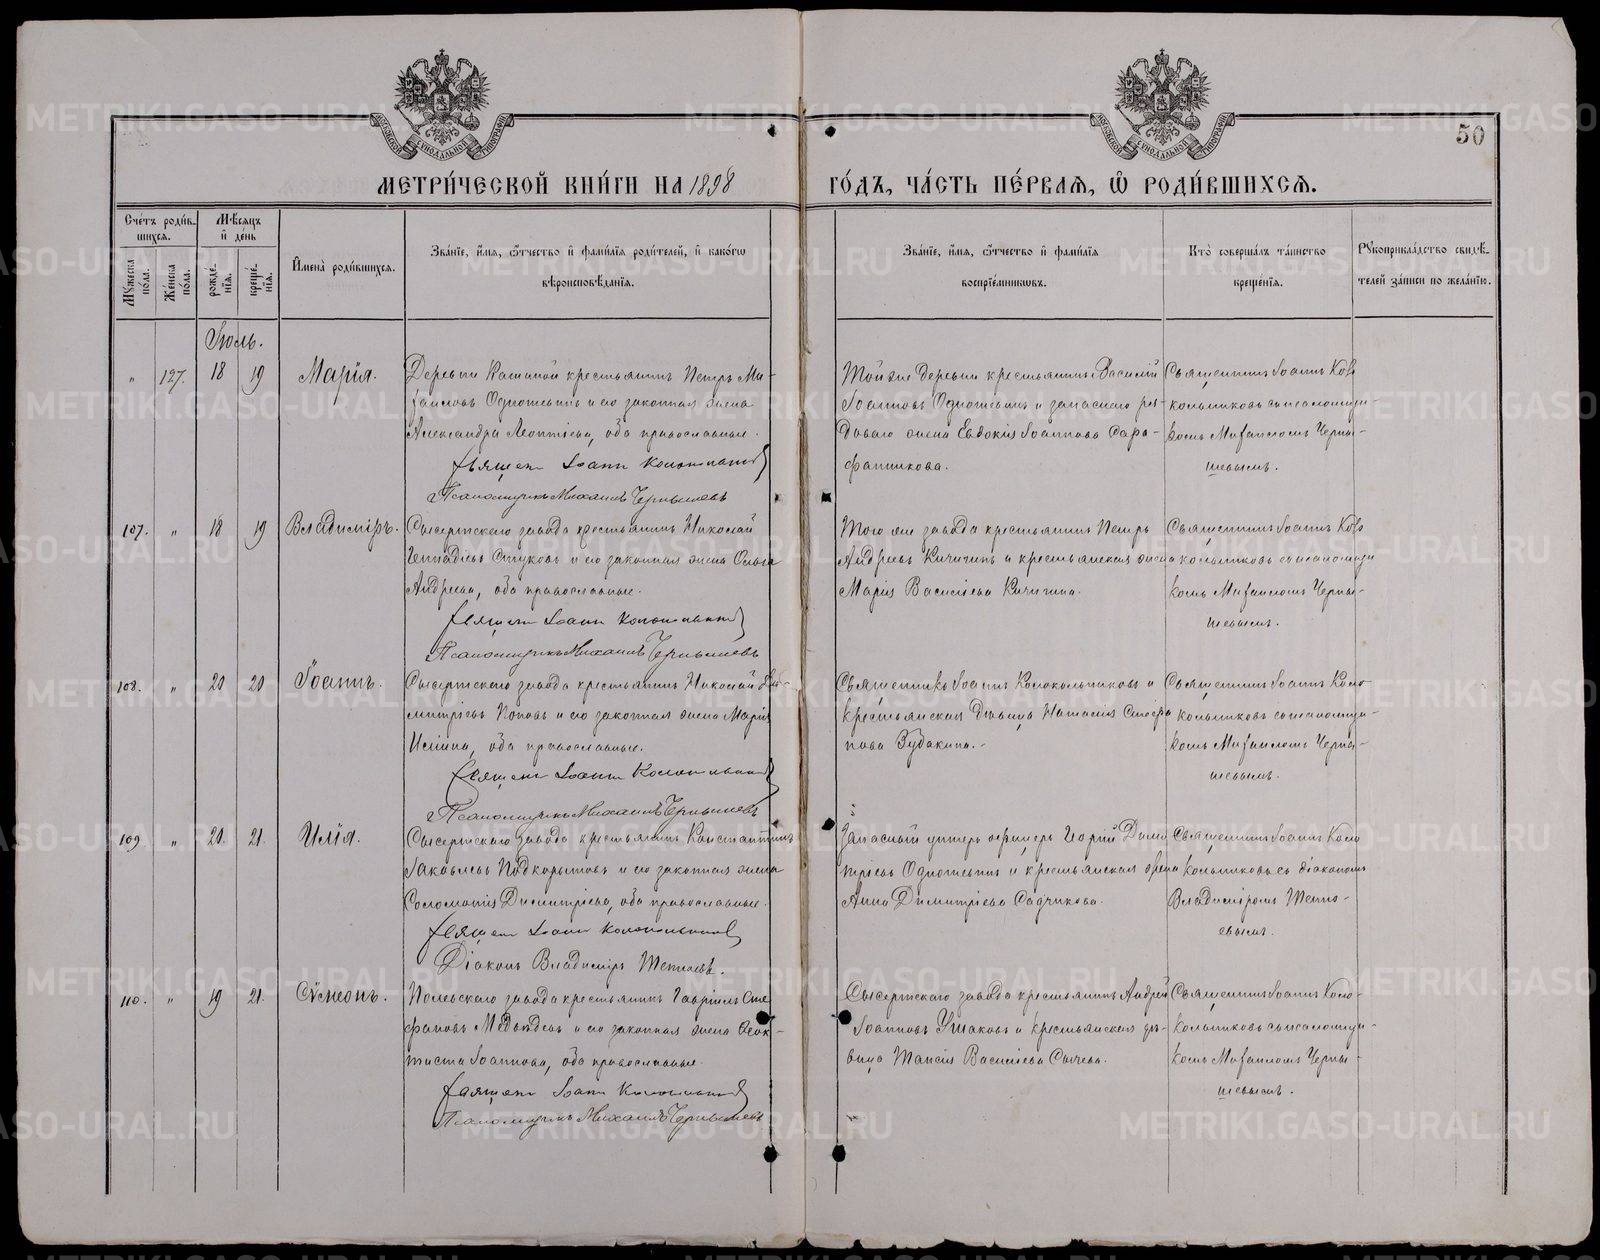 50
МЕТРИ́ЧЕСКОЙ КНИ́ГИ НА 1898 ГО́ДЪ, ЧА́СТЬ ПЕ́РВАЯ, Ѡ҆ РОДИ́ВШИХСЯ.
Сче́тъ роди́в-
шихся.
Мꙋ́жеска по́ла.
Же́нска по́ла.
Мѣ́сяцъ и҆ де́нь
рожде́нїя.
креще́нїя.
И҆мена̀ роди́вшихся.
Зва́нїе, и҆́мя, ѻ҆́тчество и҆ фами́лїя роди́телей, и҆ како́гѡ
вѣроисповѣ́данїя.
Зва́нїе, и҆́мя, ѻ҆́тчество и҆ фами́лїя
воспрїе́мникѡвъ.
Кто̀ соверша́лъ та́инство
креще́нїя.
Рꙋкоприкла́дство свидѣ́-
телей за́писи по жела́нїю.
Іюль.
" 127. 18 19 Марія.
Деревни Кашиной крестьянинъ Петръ Ми-
хаиловъ Однотевинъ и его законная жена
Александра Леонтіева, оба православные.
Священ Іоаннъ Колокольников
Псаломщикъ Михаилъ Чернышевъ
Той же деревни крестьянинъ Василій
Іоанновъ Однотевинъ и запаснаго ря-
доваго жена Евдокія Іоаннова Сара-
фанникова.
Священникъ Іоаннъ Коло
кольниковъ съ псаломщи-
комъ Михаиломъ Черны-
шевымъ.
107. " 18 19 Владиміръ.
Сысертскаго завода крестьянинъ Николай
Геннадіевъ Стуковъ и его законная жена Ольга
Андреева, оба православные.
Священ Іоаннъ Колокольников
Псаломщикъ Михаилъ Чернышевъ
Того же завода крестьянинъ Петръ
Андреевъ Кичигинъ и крестьянская жена
Марія Василіева Кичигина.
Священникъ Іоаннъ Коло
кольниковъ съ псаломщи
комъ Михаиломъ Черны-
шевымъ.
108. " 20 20 Іоаннъ.
Сысертскаго завода крестьянинъ Николай Ди-
митріевъ Поповъ и его законная жена Марія
Иліина, оба православные.
Священ Іоаннъ Колокольников
Псаломщикъ Михаилъ Чернышевъ
Священникъ Іоаннъ Колокольниковъ и
крестьянская дѣвица Наталія
нова Зудакина.
Священникъ Іоаннъ Коло-
кольниковъ съ псаломщи-
комъ Михаиломъ Черны-
шевымъ.
109. " 20. 21. Илія.
Сысертскаго завода крестьянинъ Константинъ
Іаковлевъ Подкорытовъ и его законная жена
Соломонія Димитріева, оба православные.
Священ Іоаннъ Колокольников
Діаконъ Владиміръ
Запасный унтеръ офицеръ Георгій Дими
тріевъ Однотевинъ и крестьянская жена
Анна Димитріева Садчикова.
Священникъ Іоаннъ Коло
кольниковъ съ діакономъ
Владиміромъ
110. " 19 21. Сѵмеонъ.
Полевскаго завода крестьянинъ Гавріилъ Сте
фановъ Медвѣдевъ и его законная жена Ѳеок-
тиста Іоаннова, оба православные.
Священ Іоаннъ Колокольников
Псаломщикъ Михаилъ Чернышевъ
Сысертскаго завода крестьянинъ Андрей
Іоанновъ Ушаковъ и крестьянская дѣ-
вица Таисія Василіева Сычева.
Священникъ Іоаннъ Коло-
кольниковъ съ псаломщи-
комъ Михаиломъ Черны-
шевымъ.
METRIKI.GASO-URAL.RU